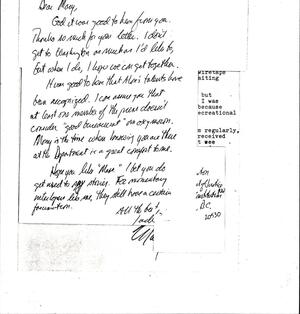 Dear Mary,
God it was good to hear from you.
Thanks so much for your letter. I don't
get to Washington as much as I'd like to,
but when I do, I hope we can get together.
It was good to hear that Mari's talents have
been recognized. I can assure you that
at least one member of the press doesn't
consider "good bureaucrat" an oxymoron.
Many is the time when knowing you are there
at the Department is a great comfort to me.
Hope you like "Mass". I bet you do
get used to my stories. For momentary
like me, they still have a certain
fascination.
All the best,
wiretape
aiting
but
I was
because
ecreational
s regularly,
received
t wee
of Justice
NW
D.C.
20530